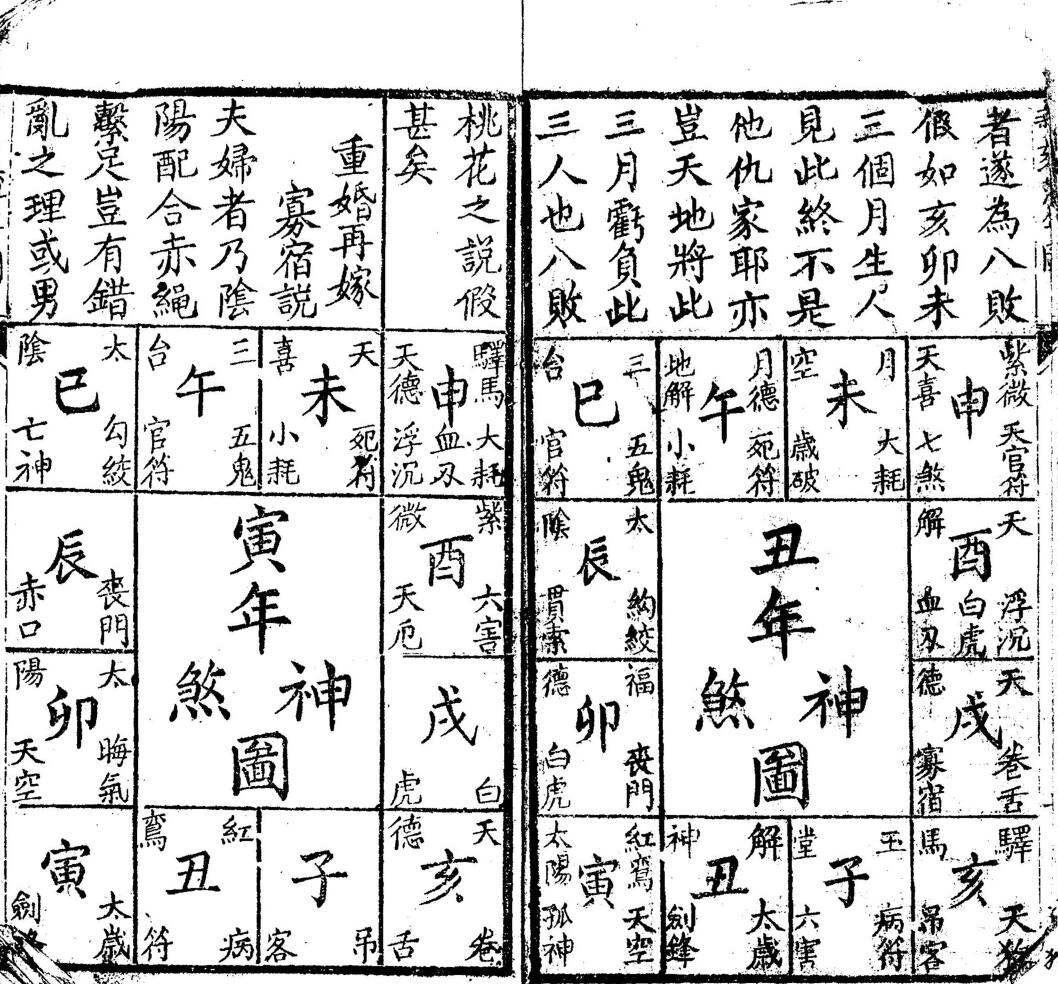 者遂為八敗
假如亥卯未
三個月生人
見此終不是
他仇家耶亦
豈天地將此
三月虧負此
三人也八敗
紫微
天官符
申
天喜
七煞
月
大耗
未
空
歲破
月德
死符
午
地解
小耗
三
五鬼
巳
台
官符
天
浮沉
酉
白虎
解
血刃
丑年
神
煞
圖
太
約絞
辰
陰
貫索
天
卷舌
戌
德
寡宿
福
喪門
卯
德
白虎
驛
天狗
亥
馬
吊客
玉
病符
子
堂
六害
解
太歲
丑
神
劍鋒
紅鸞
天空
寅
太陽
孤神
桃花之說假
甚矣
重婚再嫁
寡宿説
夫婦者乃陰
陽配合赤繩
繫足豈有錯
亂之理或男
驛馬
大耗
申
血刃
天德
浮沉
天
死符
未
喜
小耗
三
五鬼
午
台
官符
太
勾絞
巳
陰
亡神
紫
六害
酉
微
天厄
寅年
神
煞
圖
喪門
辰
赤口
白
戌
虎
太
晦氣
卯
陽
天空
天
卷
亥
德
舌
吊
子
客
紅
病
丑
鸞
符
太歲
寅
劍